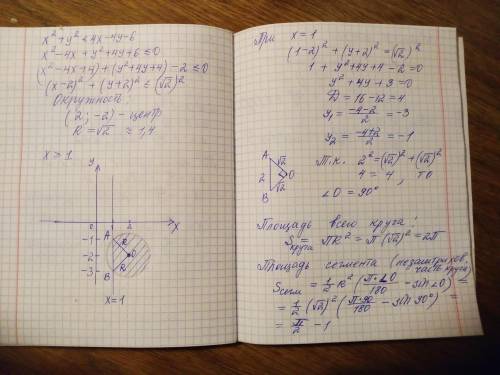 x² + y² ≤ 4x - 4y - 6
x² - 4x + y² + 4y + 6 ≤ 0
(x² - 4x + 4) + (y² + 4y + 4) - 2 ≤ 0
(x - 2)² + (y + 2)² ≤ (√2)²
Окружность:
(2; -2) - центр
R = √2 ≈ 1,4
x ≥ 1
y
0
2
x
-1
-2
-3
A
R
O
R
B
x = 1
При x = 1
(1-2)² + (y+2)² = (√2)²
1 + y² + 4y + 4 - 2 = 0
y² + 4y + 3 = 0
D = 16 - 12 = 4
y₁ = (-4-2)/2 = -3
y₂ = (-4+2)/2 = -1
A
√2
2
O
√2
B
Т.к. 2² = (√2)² + (√2)²
4 = 4, то
∠O = 90°
Площадь всего круга:
Sкруга = ПR² = π(√2)² = 2π
Площадь сегмента (незаштрихов. часть круга)
Sсегм = 1/2 R² (π·∠O/180 - sin∠O) =
= 1/2 (√2)² (π·90/180 - sin 90°) =
= π/2 - 1